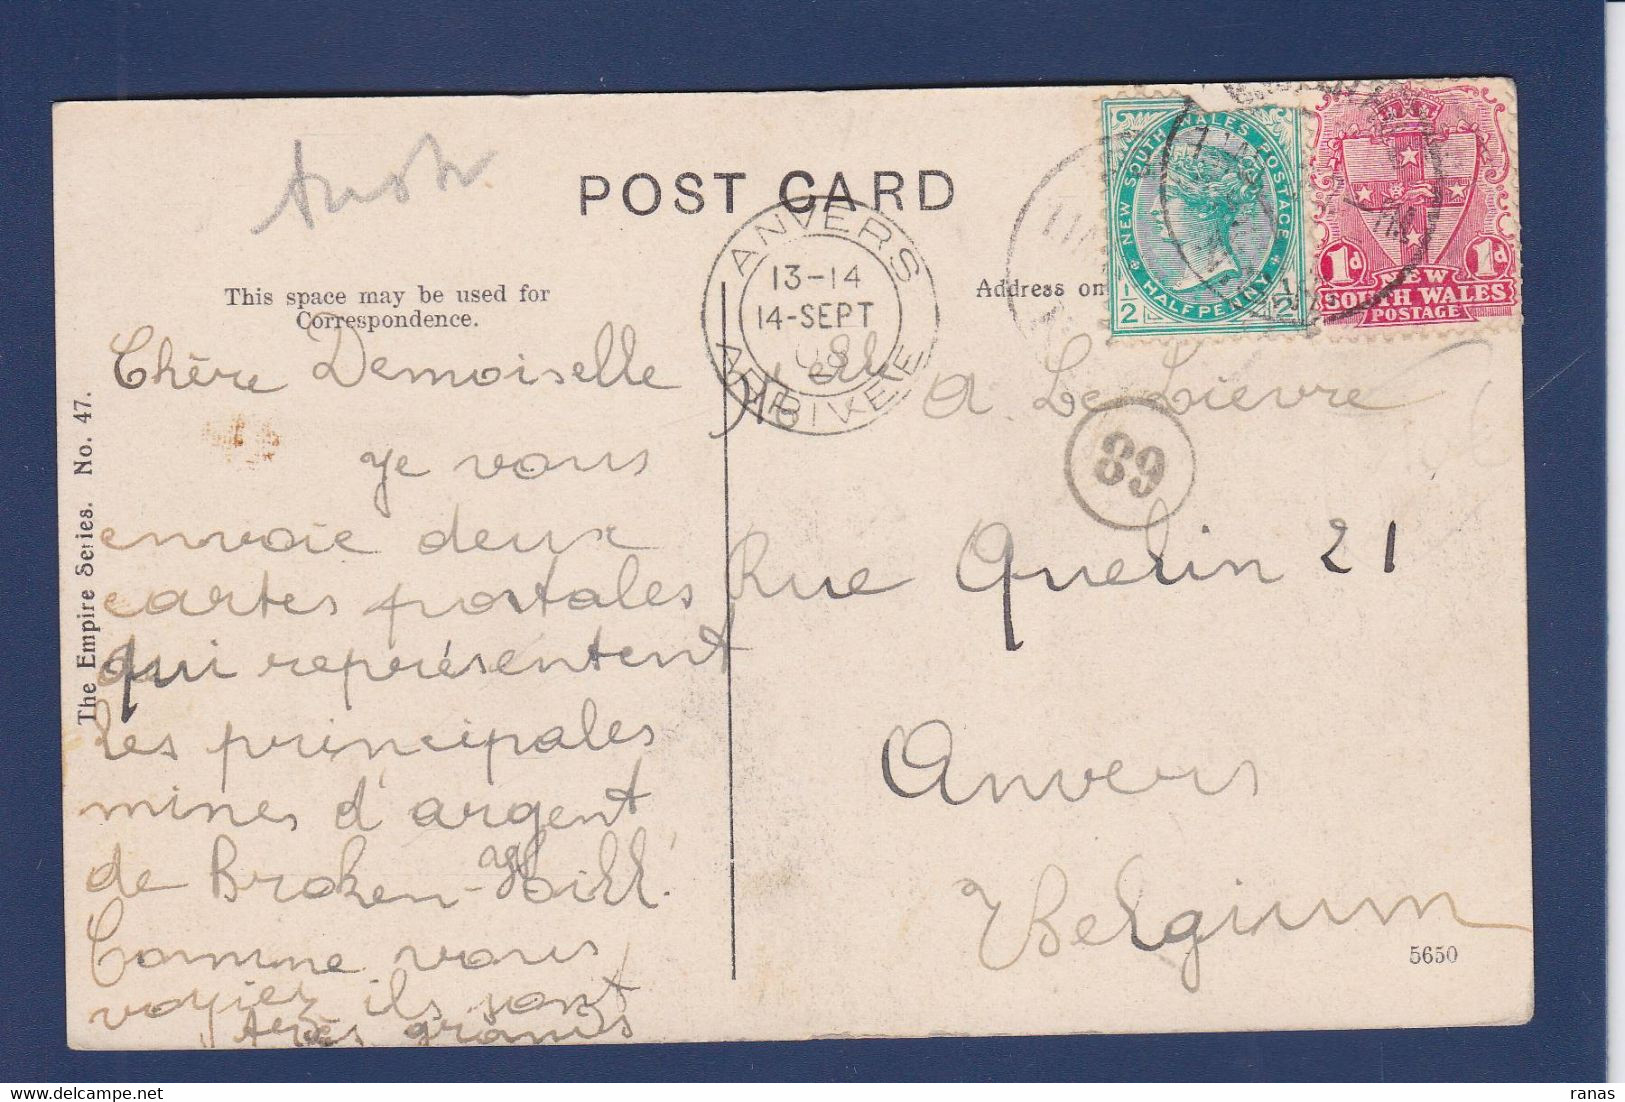 Austr
POST CARD
This space may be used for
Correspondence.
Address on
ANVERS
13-14
14-SEPT
08
ARRIVEE
NEW SOUTH WALES POSTAGE
1/2 HALFPENNY 1/2
1d 1d
NEW
SOUTH WALES
POSTAGE
The Empire Series. No. 47.
Chère Demoiselle
je vous
envoie deux
cartes postales
qui représentent
les principales
mines d'argent
de Broken-Hill.
Comme vous
voyiez ils sont
très grands
A Le Lievre
89
Rue Quelin 21
Anvers
Belgium
5650
ranas